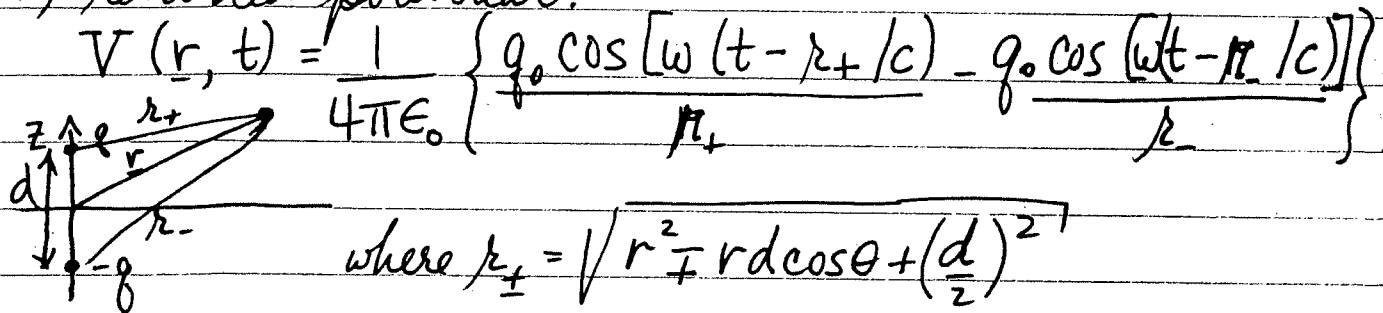 V (r, t) = 1/4πϵ₀ { q₀ cos [ω (t - r₊ /c) / r₊ - q₀ cos [ω(t - r₋ /c)] / r₋ }
z q r₊
r
d
r₋
-q
where r± = √(r² ∓ rd cosθ + (d/2)²)